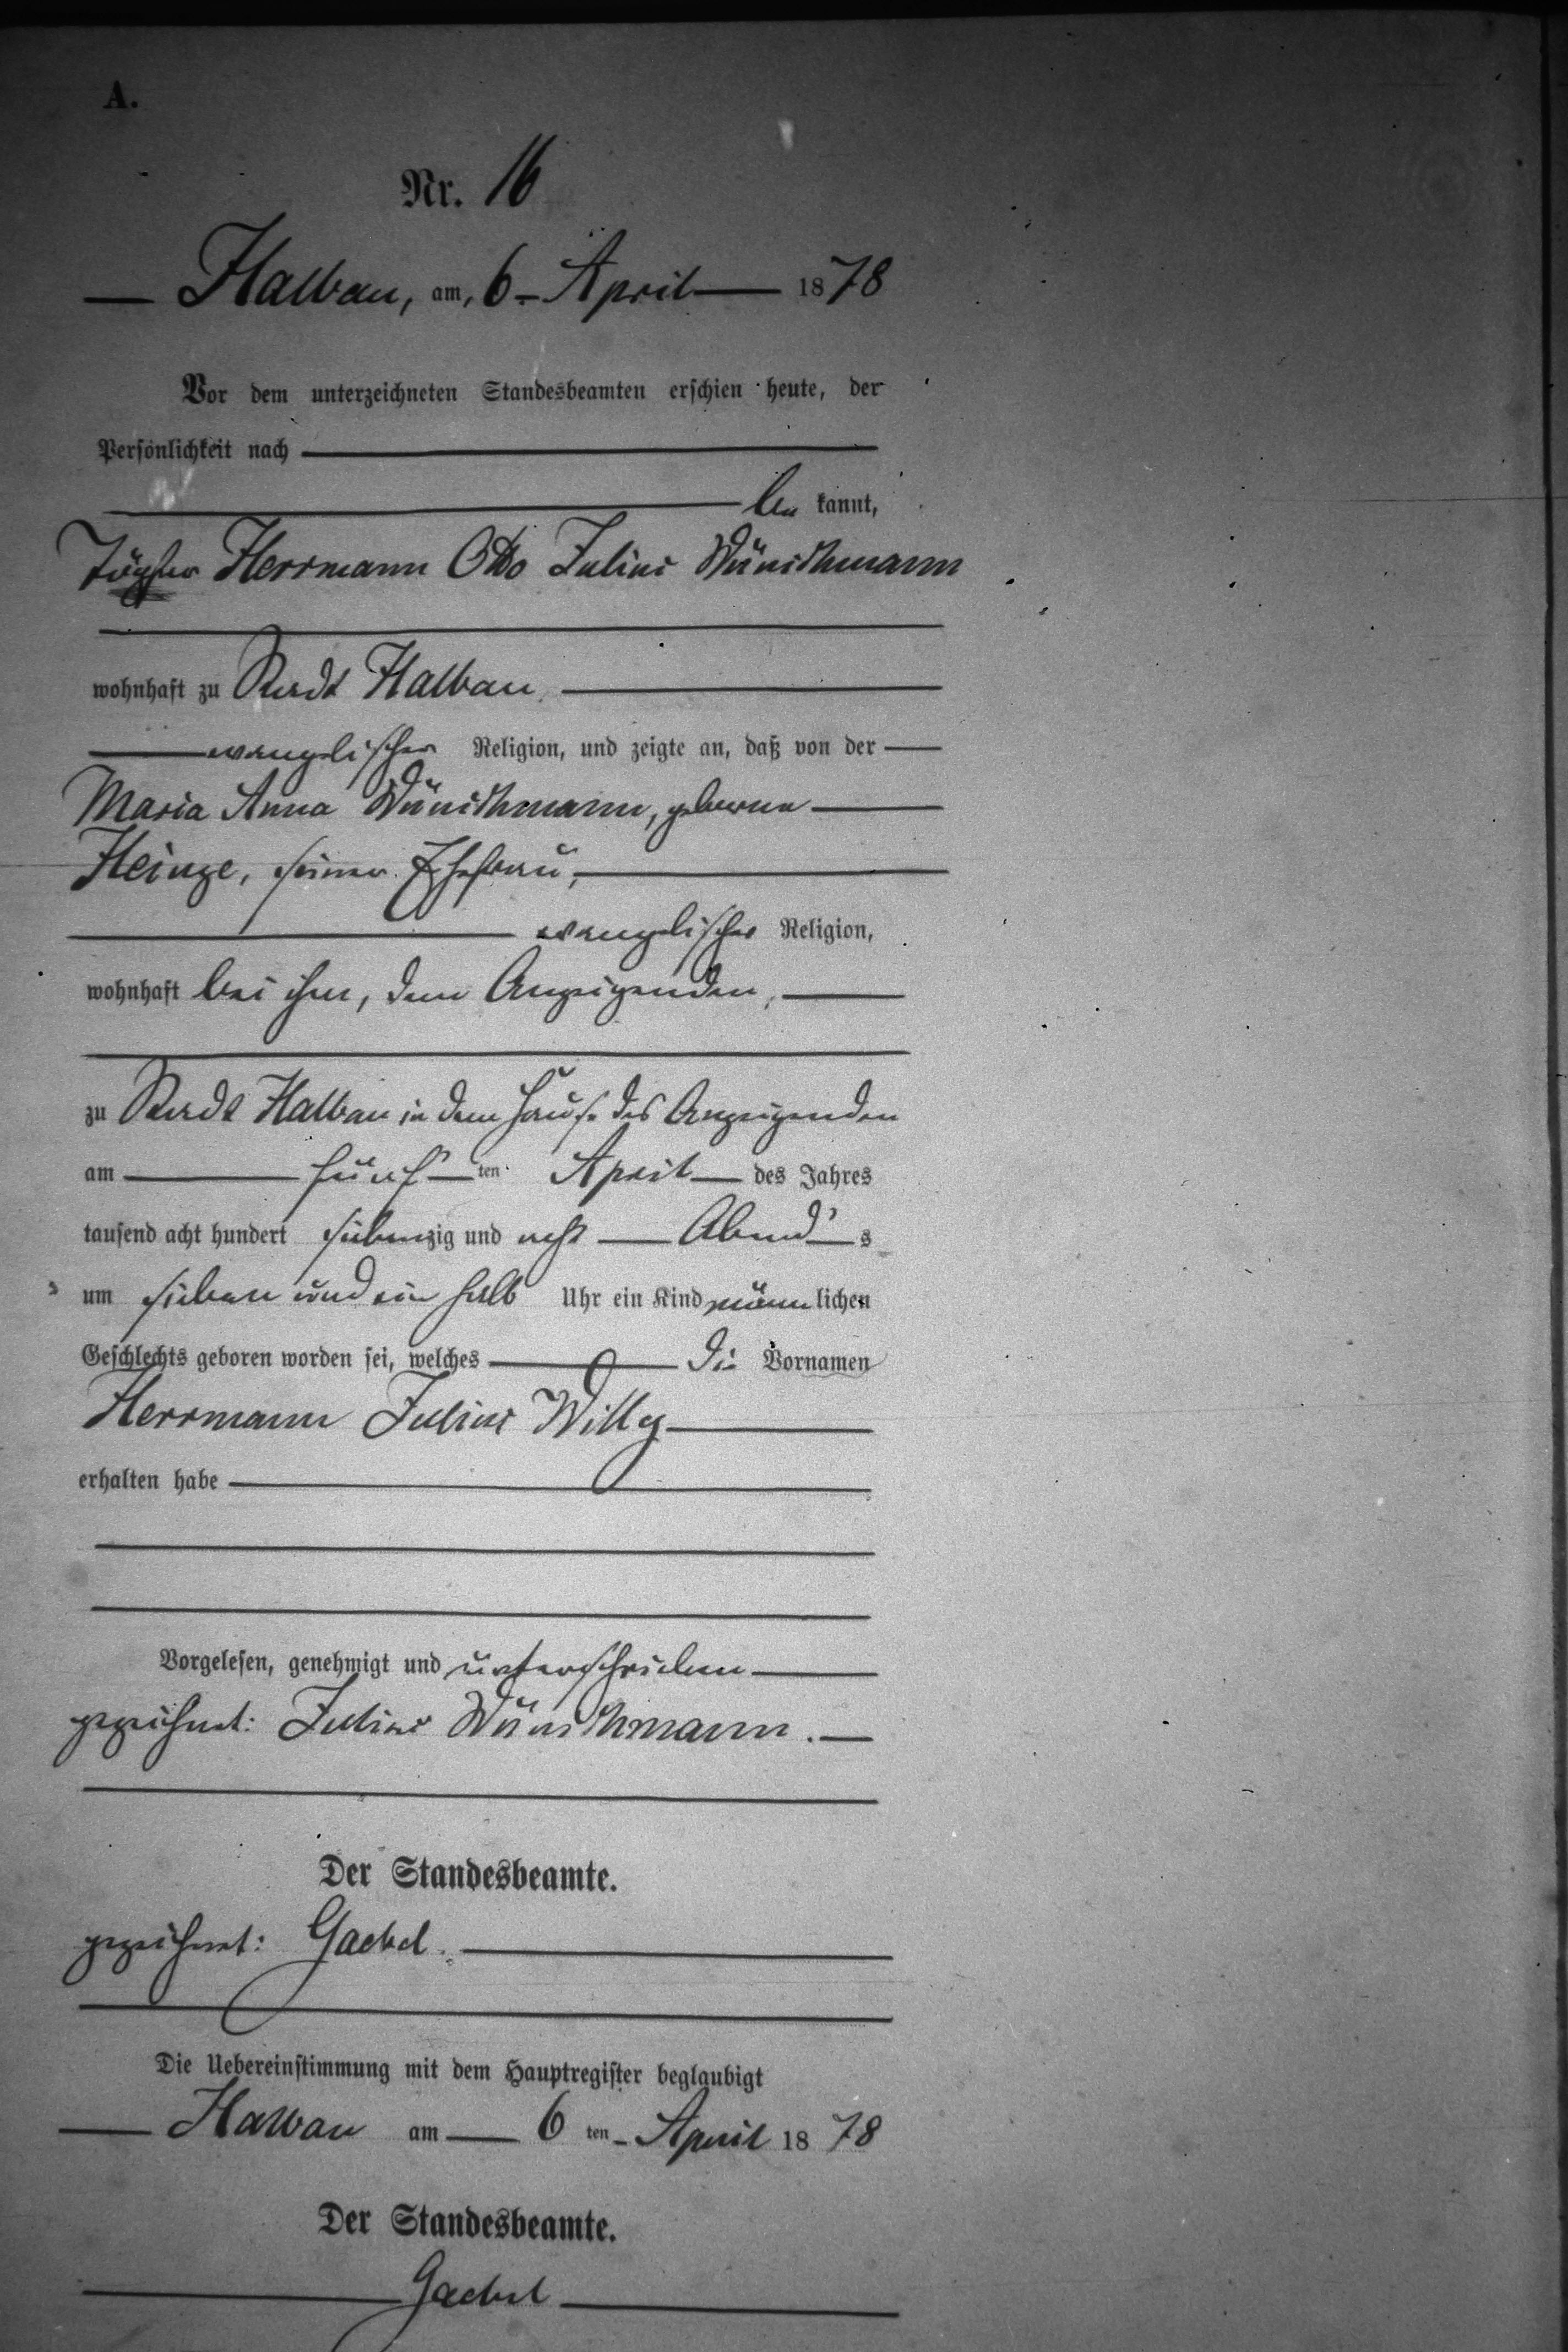 A.
Nr. 16
Halbau, am 6. April 1878
Vor dem unterzeichneten Standesbeamten erschien heute, der
Persönlichkeit nach
be kannt,
Töpfer Herrmann Otto Julius Wünschmann
wohnhaft zu Stadt Halbau
evangelischer Religion, und zeigte an, daß von der
Maria Anna Wünschmann, geborne
Heinze, seiner Ehefrau,
evangelischer Religion,
wohnhaft bei ihm, dem Anzeigenden,
zu Stadt Halbau in dem Hause des Anzeigenden
am fünf ten April des Jahres
tausend acht hundert siebenzig und acht Abend's
um sieben und ein halb Uhr ein Kind männlichen
Geschlechts geboren worden sei, welches die Vornamen
Herrmann Julius Willy
erhalten habe
Vorgelesen, genehmigt und unterschrieben
gezeichnet: Julius Wünschmann.
Der Standesbeamte.
gezeichnet: Gaebel.
Die Uebereinstimmung mit dem Hauptregister beglaubigt
Halbau am 6 ten April 1878
Der Standesbeamte.
Gaebel